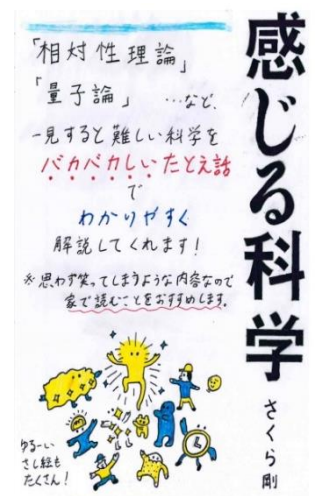 感じる科学
さくら剛
「相対性理論」
「量子論」 …など、
一見すると難しい科学を
バカバカしいたとえ話
で
わかりやすく
解説してくれます!
※思わず笑ってしまうような内容なので
家で読むことをおすすめします。
ゆるーい
さし絵も
たくさん!